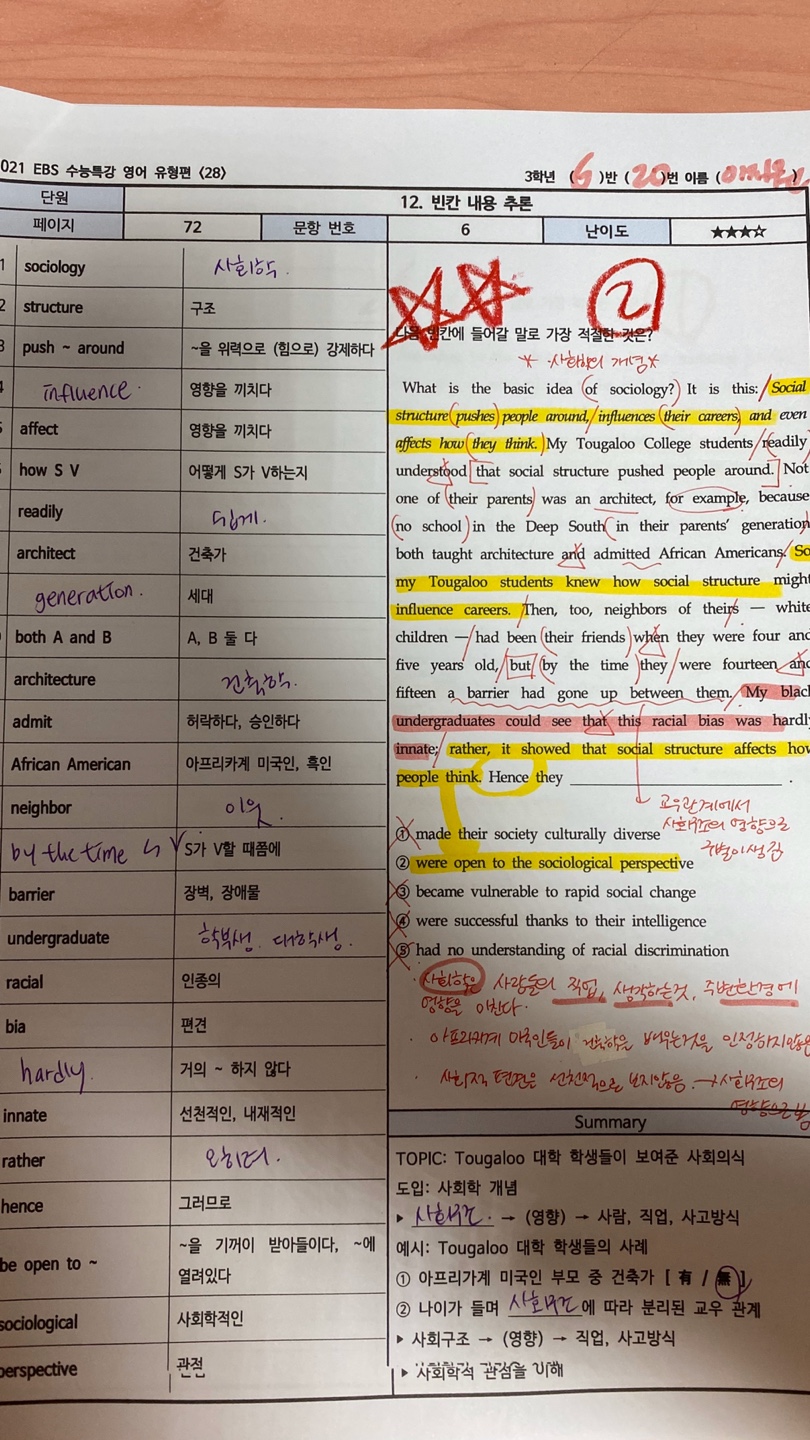 021 EBS 수능특강 영어 유형편 〈28〉
3학년 ( 6 )반 ( 20 )번 이름 ( )
단원
12. 빈칸 내용 추론
페이지 72 문항 번호 6 난이도 ★★★☆
1 sociology 사회학.
2 structure 구조
3 push ~ around ~을 위력으로 (힘으로) 강제하다
4 influence. 영향을 끼치다
5 affect 영향을 끼치다
how S V 어떻게 S가 V하는지
readily 쉽게.
architect 건축가
generation. 세대
both A and B A, B 둘 다
architecture 건축학.
admit 허락하다, 승인하다
African American 아프리카계 미국인, 흑인
neighbor 이웃.
by the time S가 V할 때쯤에
barrier 장벽, 장애물
undergraduate 학부생. 대학생.
racial 인종의
bia 편견
hardly. 거의 ~ 하지 않다
innate 선천적인, 내재적인
rather 오히려.
hence 그러므로
be open to ~ ~을 기꺼이 받아들이다, ~에
열려있다
sociological 사회학적인
perspective 관점
②
다음 빈칸에 들어갈 말로 가장 적절한 것은?
* 사회학의 개념 *
What is the basic idea of sociology? It is this: Social
structure pushes people around, influences their careers, and even
affects how they think. My Tougaloo College students readily
understood that social structure pushed people around. Not
one of their parents was an architect, for example, because
no school in the Deep South in their parents' generation
both taught architecture and admitted African Americans. So
my Tougaloo students knew how social structure might
influence careers. Then, too, neighbors of theirs — white
children — had been their friends when they were four and
five years old, but by the time they were fourteen and
fifteen a barrier had gone up between them. My black
undergraduates could see that this racial bias was hardly
innate; rather, it showed that social structure affects how
people think. Hence they ____________________ .
교우관계에서
사회구조의 영향으로
구별이 생김
① made their society culturally diverse
② were open to the sociological perspective
③ became vulnerable to rapid social change
④ were successful thanks to their intelligence
⑤ had no understanding of racial discrimination
· 사회학은 사람들의 직업, 생각하는것, 주변환경에
영향을 끼친다.
· 아프리카계 미국인들이 건축학을 배우는것을 인정하지않음
· 사회적 편견은 선천적으로 보지않음. → 사회구조의
영향으로 봄
Summary
TOPIC: Tougaloo 대학 학생들이 보여준 사회의식
도입: 사회학 개념
▸ 사회구조. → (영향) → 사람, 직업, 사고방식
예시: Tougaloo 대학 학생들의 사례
① 아프리가계 미국인 부모 중 건축가 [ 有 / 無 ]
② 나이가 들며 사회구조에 따라 분리된 교우 관계
▸ 사회구조 → (영향) → 직업, 사고방식
▸ 사회학적 관점을 이해